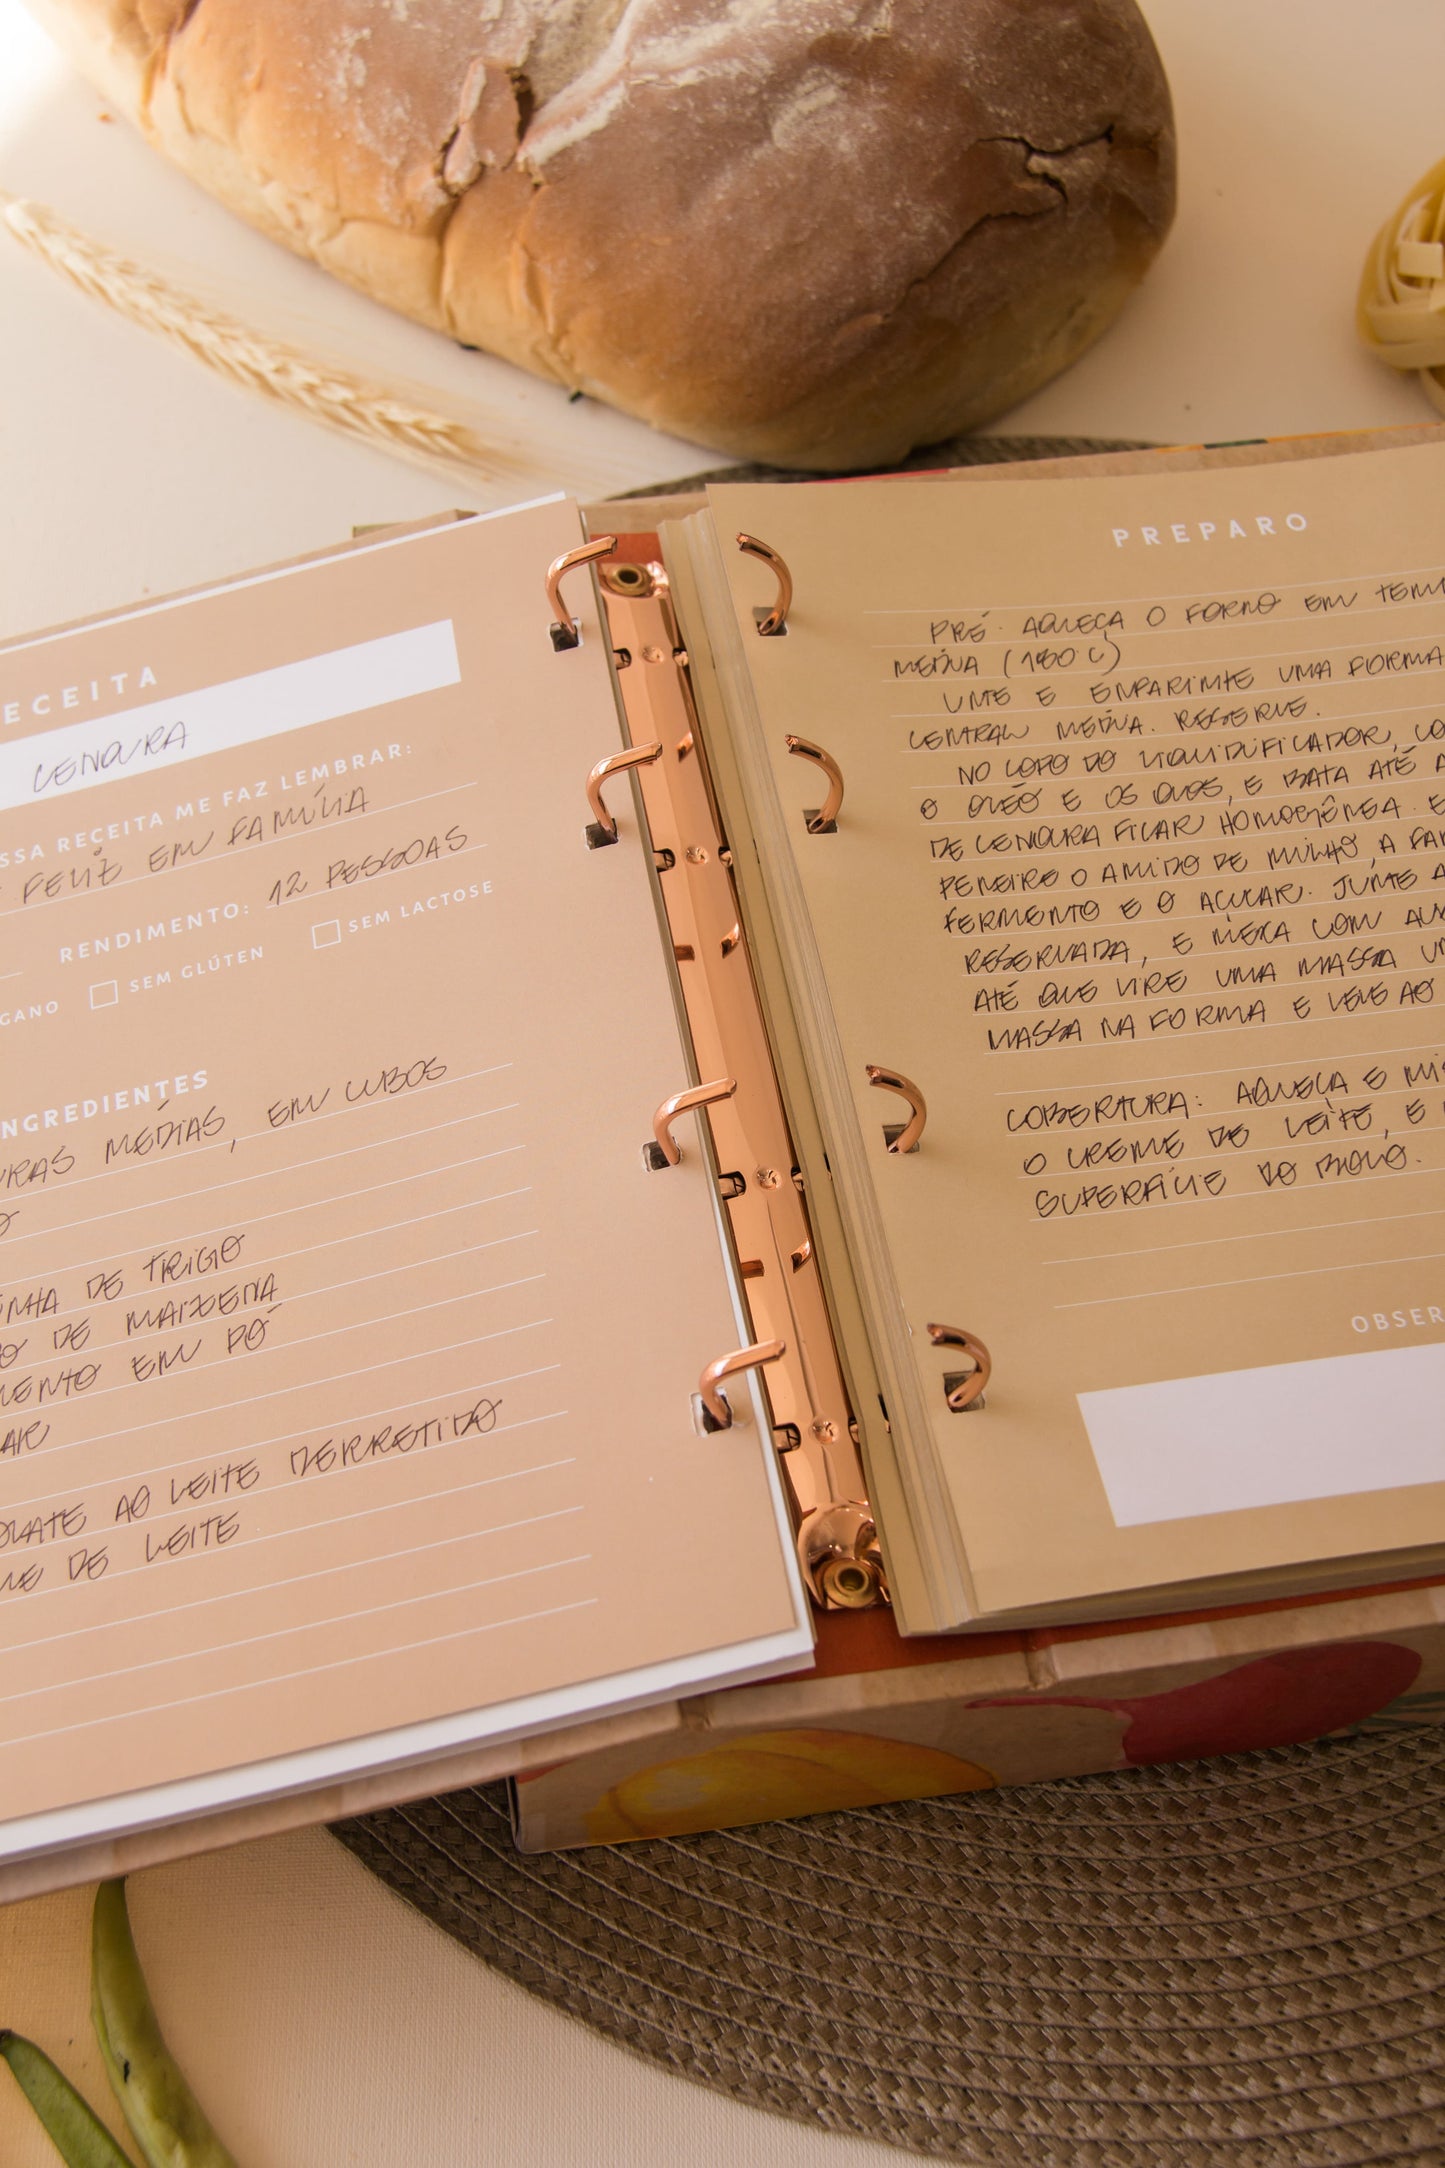 ECEITA
CENOURA
SSA RECEITA ME FAZ LEMBRAR:
FELIZ EM FAMÍLIA
RENDIMENTO: 12 PESSOAS
GANO SEM GLÚTEN SEM LACTOSE
NGREDIENTES
URAS MEDIAS, EM CUBOS
O
INHA DE TRIGO
O DE MAIZENA
MENTO EM PÓ
AR
OLATE AO LEITE DERRETIDO
ME DE LEITE
PREPARO
PRÉ-AQUEÇA O FORNO EM TEM
MEDIA (180 C)
UNTE E ENFARINHE UMA FORMA
CENTRAL MEDIA. RESERVE.
NO COPO DO LIQUIDIFICADOR, CO
O OLEO E OS OVOS, E BATA ATÉ A
DE CENOURA FICAR HOMOGÊNEA. E
PENEIRE O AMIDO DE MILHO, A FAR
FERMENTO E O AÇUCAR. JUNTE A
RESERVADA, E MEXA COM
ATÉ QUE VIRE UMA MASSA
MASSA NA FORMA E LEVE AO
COBERTURA: AQUEÇA E MIS
O CREME DE LEITE, E
SUPERFÍCIE DO BOLO.
OBSER